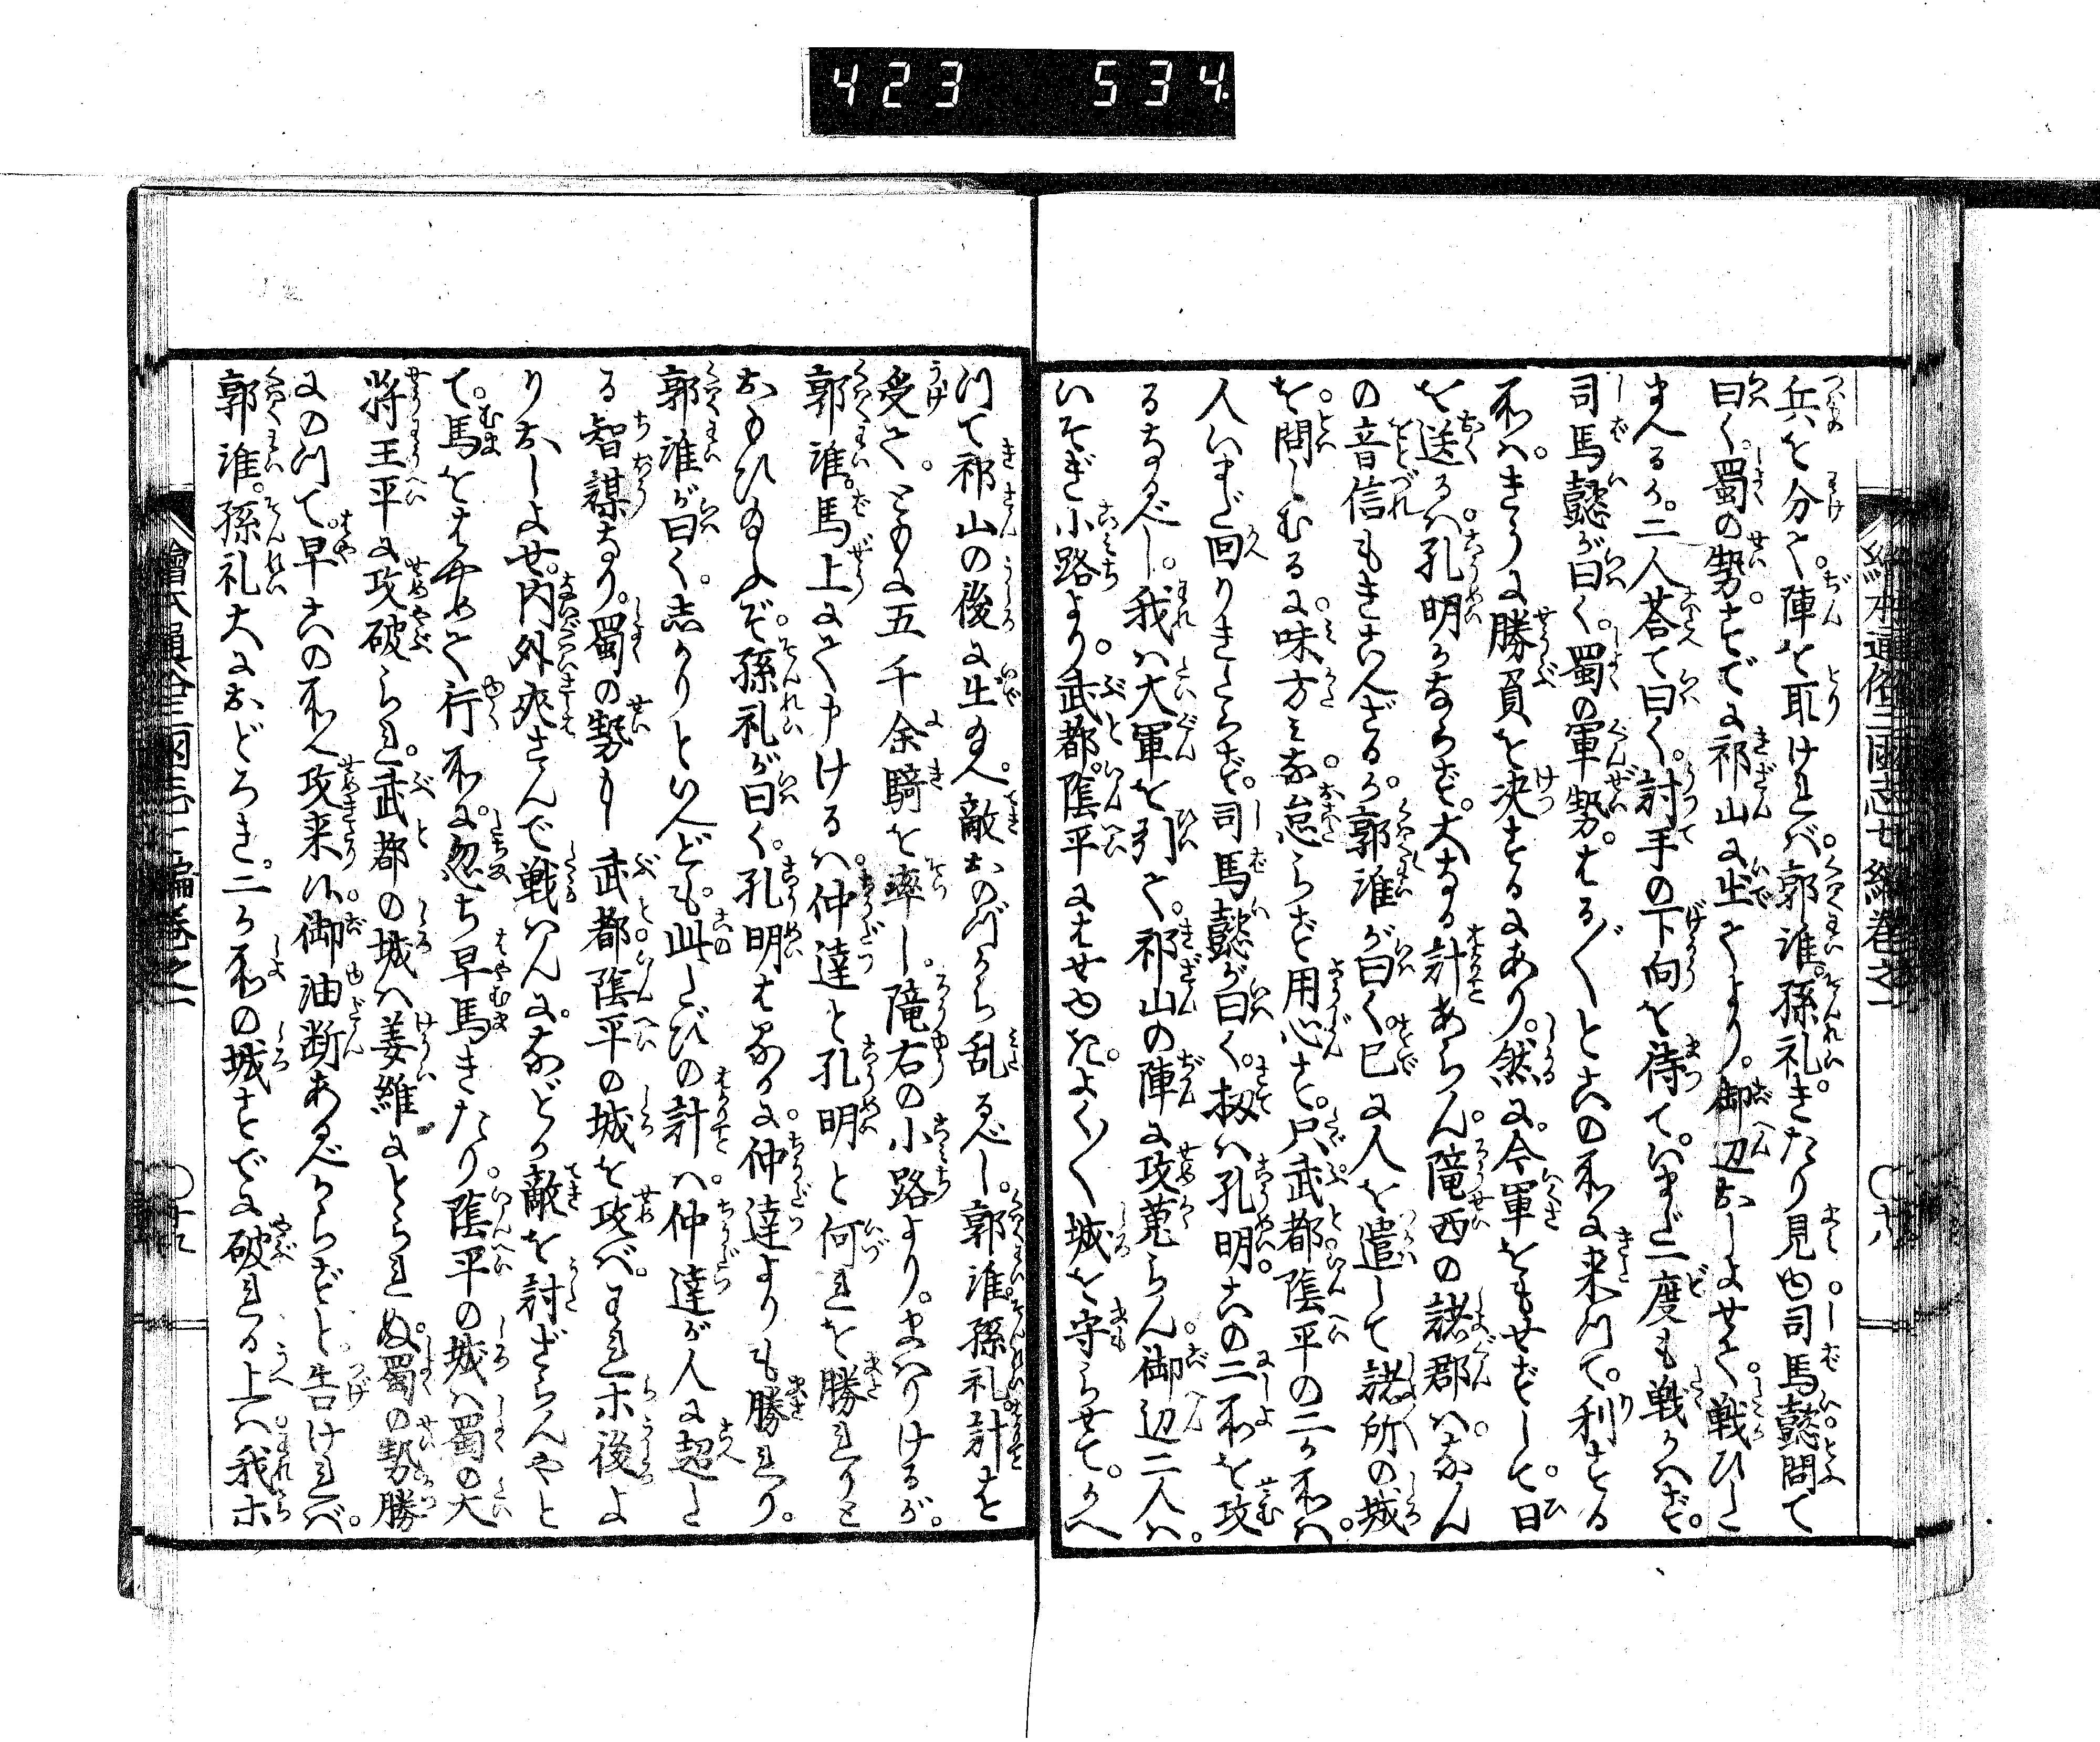 423 534
兵を分て。陣を取ければ。郭淮。孫礼。きたり見ゆ。司馬懿問て
曰く。蜀の勢。すでに祁山に出てより。御辺おしよせて。戦ひし
まへるか。二人荅て曰く。討手の下向を待て。いまだ一度も戦かはず。
司馬懿が曰く。蜀の軍勢。はる〴〵と此の所に来つて。利する
所は。きうに勝負を决するにあり。然に。今軍をもせずして。日
を送るは。孔明かならず。大なる計あらん。隴西の諸郡は。なん
の音信もきこへざるか。郭淮が曰く。已に人を遣して。諸所の城
を。問しむるに。味方みな。怠らず用心す。只武都。陰平の二か所は。
人いまだ回りきたらず。司馬懿が曰く。扨は孔明。此の二所を攻
るなるべし。我は大軍を引て。祁山の陣に攻蒐らん。御辺二人は。
いそぎ小路より。武都。陰平にはせゆき。よく〳〵城を守らせて。かへ
つて祁山の後に出給へ。敵おのづから乱るべし。郭淮。孫礼。計を
受て。ともに五千余騎を率し。隴右の小路より。まはりけるが。
郭淮。馬上にて申けるは。仲達と孔明と何れを勝れりと
おもひ給ふぞ。孫礼が曰く。孔明はるかに。仲達よりも勝れり。
郭淮が曰く。志かりといへども。此たびの計は。仲達が人に超た
る智謀なり。蜀の勢もし武都陰平の城を攻べ。われホ後よ
りおしよせ。内外夾さんで戦はんに。などか敵を討ざらんやと
て。馬をはやめて行所に。忽ち早馬きたり。陰平の城は蜀の大
将王平に攻破られ。武都の城は姜維にとられぬ。蜀の勢勝
にのつて。早此の所へ攻来候。御油断あるべからずと告ければ。
郭淮。孫礼大におどろき。二か所の城すでに破れる上は。我ホ